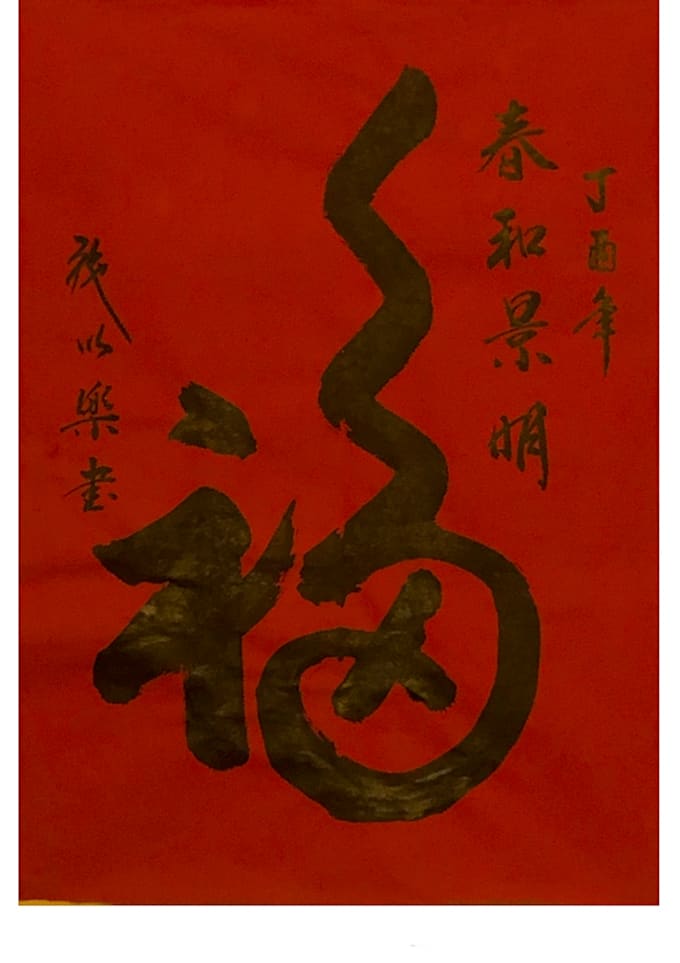 丁酉年
春和景明
福
以樂書